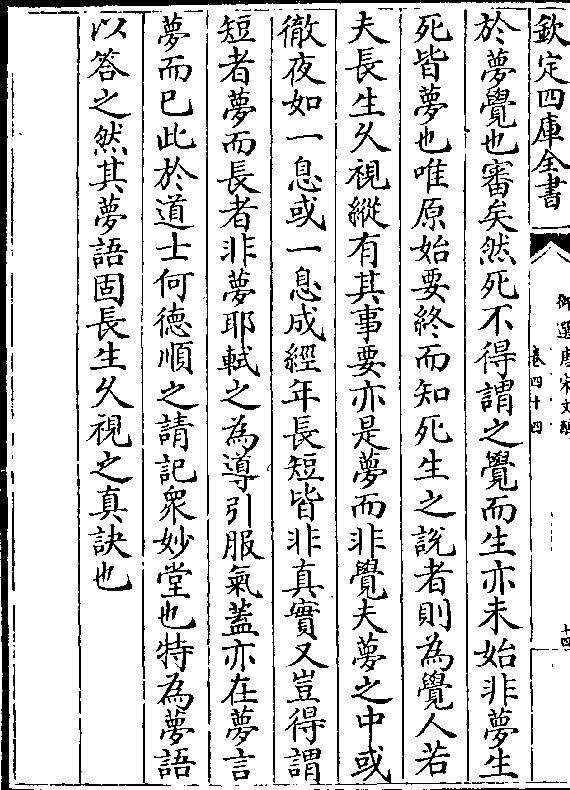 欽定四庫全書
御選唐宋文醇
卷四十四
十四
於夢覺也審矣然死不得謂之覺而生亦未始非夢生
死皆夢也唯原始要終而知死生之說者則為覺人若
夫長生久視縱有其事要亦是夢而非覺夫夢之中或
徹夜如一息或一息成經年長短皆非真實又豈得謂
短者夢而長者非夢耶軾之為導引服氣蓋亦在夢言
夢而已此於道士何德順之請記眾妙堂也特為夢語
以答之然其夢語固長生久視之真訣也